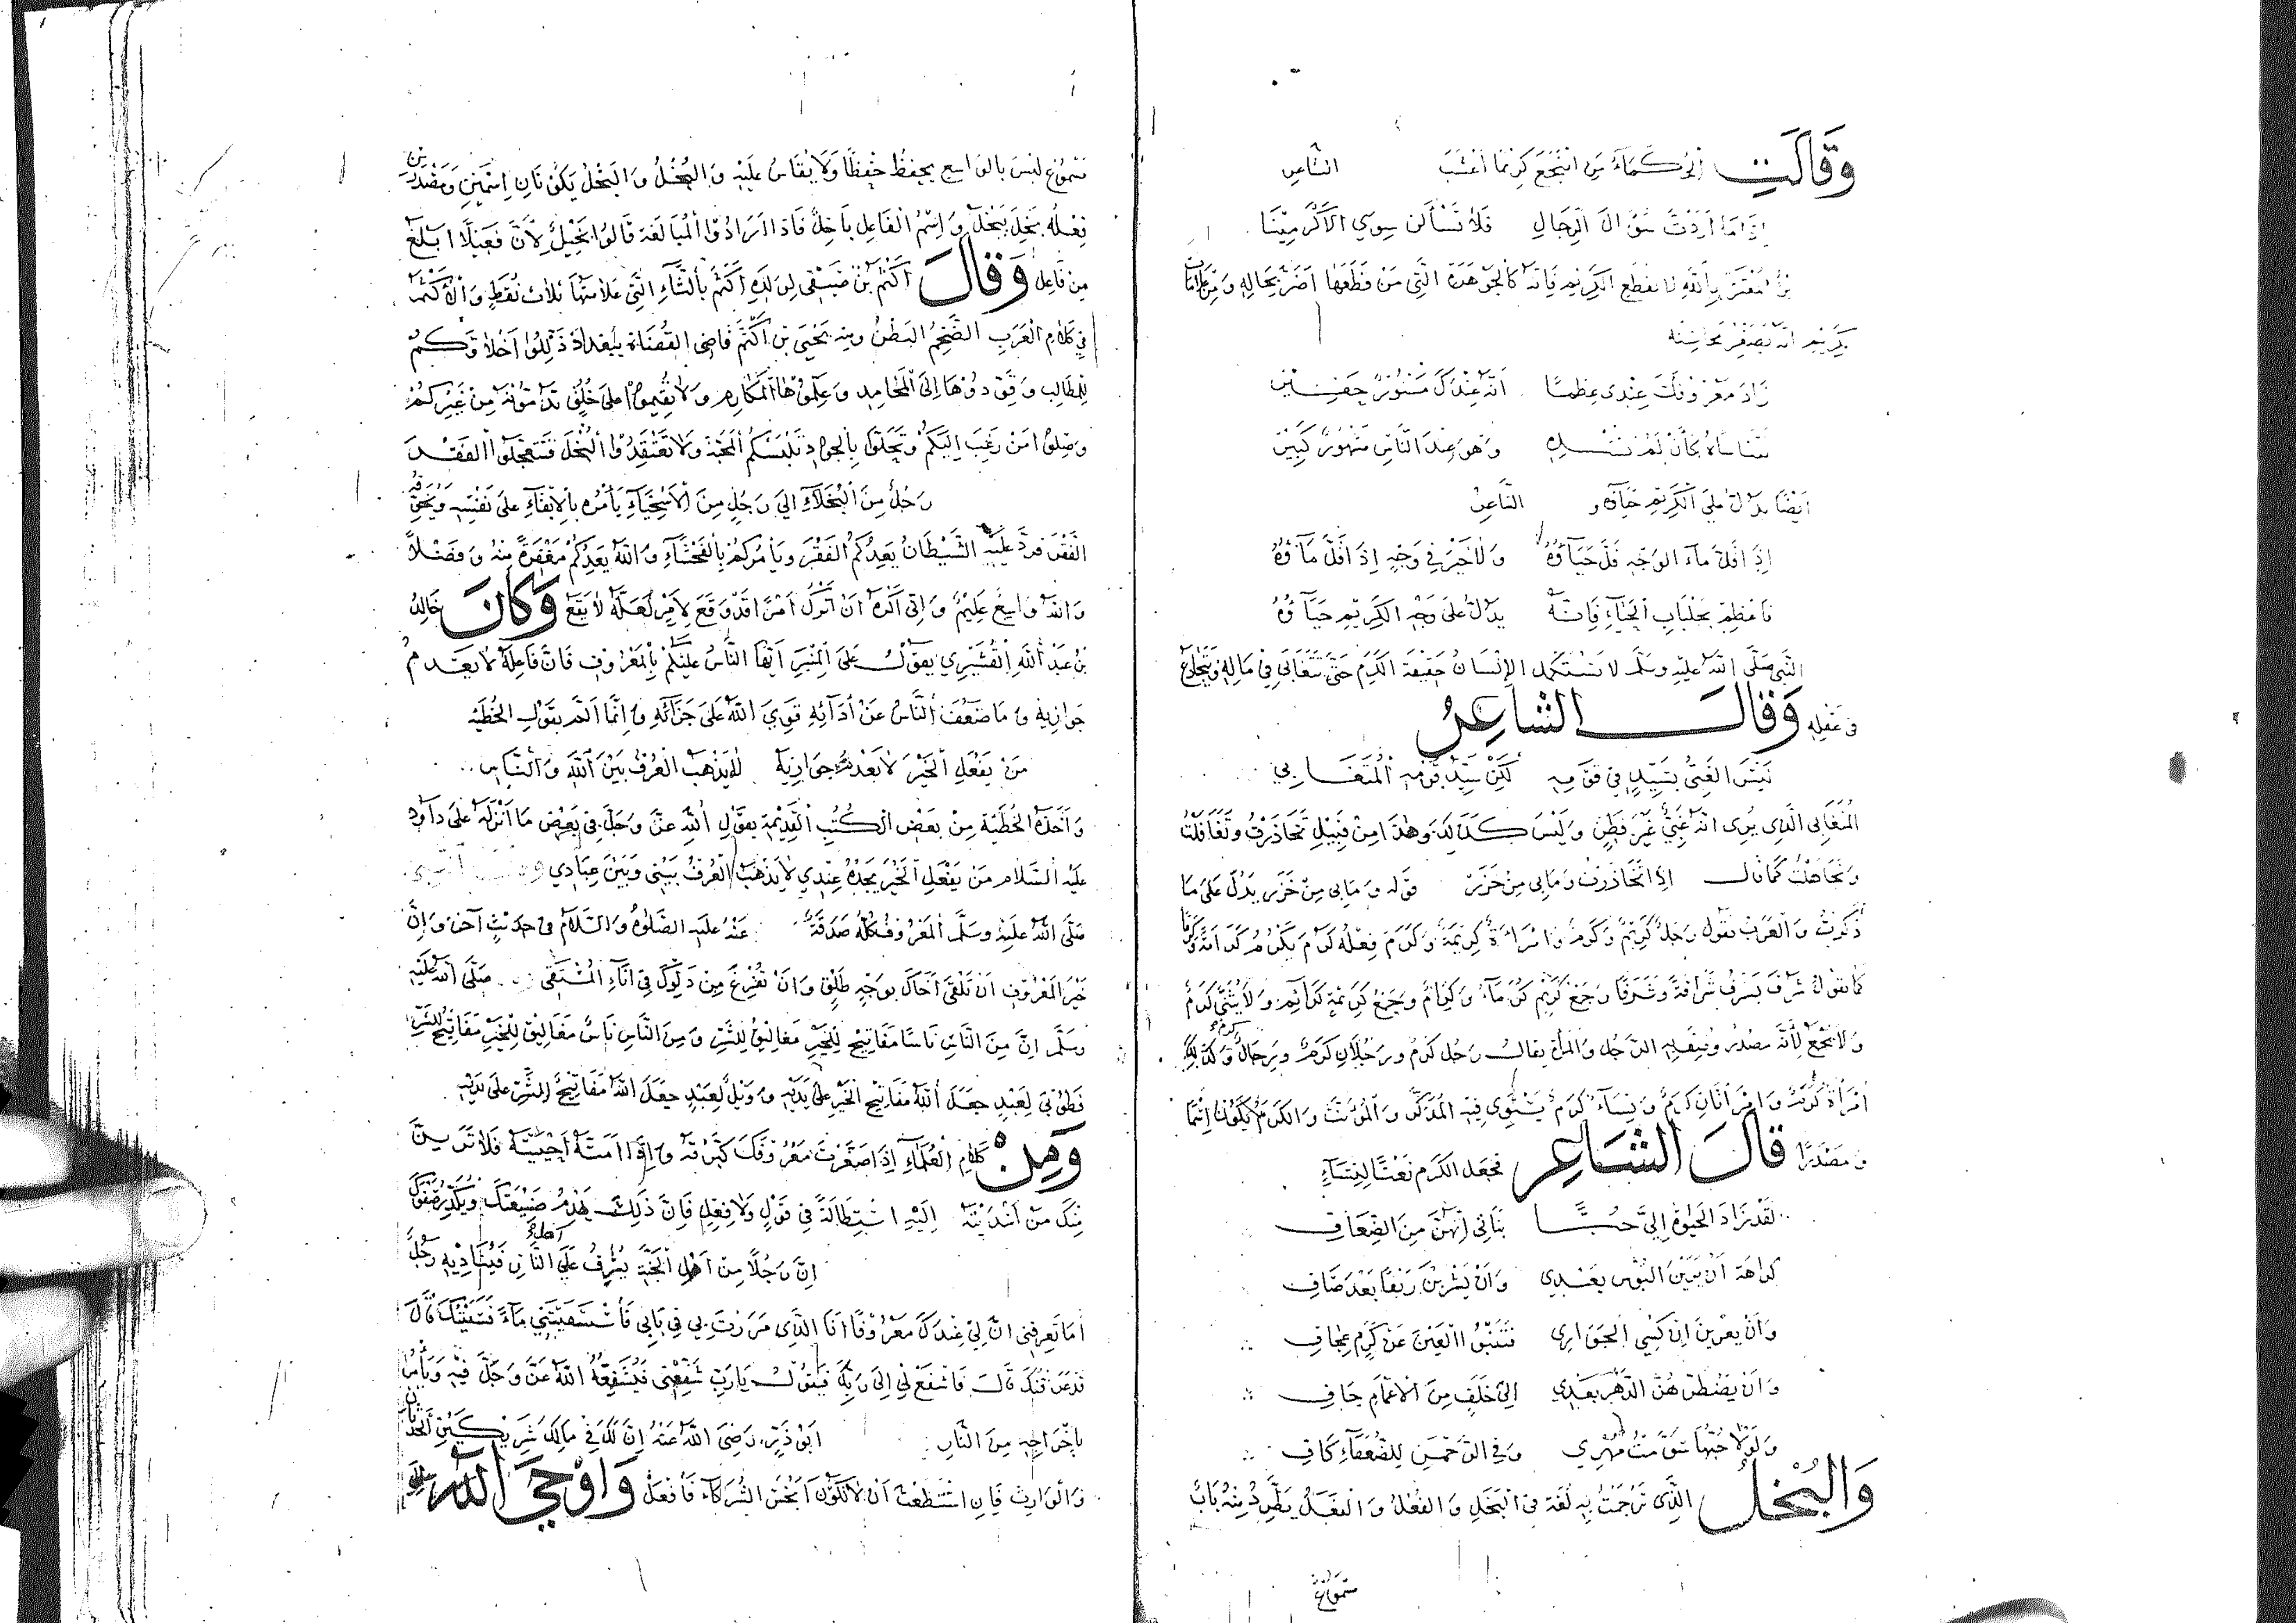 وَقَالَتِ الحُكَمَاءُ مَنِ انْتَجَعَ كَرِيمًا أَعْشَبَ الشَّاعِرُ
إِذَا مَا أَرَدْتَ سُؤَالَ الرِّجَالِ فَلَا تَسْأَلَنْ سِوَى الأَكْرَمِينَا
بِاللّٰهِ لا تقطع الكريم فَإِنَّهُ كَالْجَوْهَرَةِ الَّتِي مَنْ قَطَعَهَا أَضَرَّ بِحَالِهِ وَمِنْ
الكريم انه يُصَغِّرُ مَحَاسِنَهُ
زَادَ مَعْرُوفَكَ عِنْدِي عِظَمًا أَنَّهُ عِنْدَكَ مَسْتُورٌ حَقِيْرٌ
تَتَنَاسَاهُ كَأَنْ لَمْ تَـــهِ وَهُوَ عِنْدَ النَّاسِ مَشْهُورٌ كَبِيْرٌ
أَيْضًا يَدُلُّ عَلَى الْكَرِيمِ حَيَاؤُهُ الشَّاعِرُ
إِذَا قَلَّ مَاءُ الْوَجْهِ قَلَّ حَيَاؤُهُ وَلَا خَيْرَ فِي وَجْهٍ إِذَا قَلَّ مَاؤُهُ
بِجِلْبَابِ الْحَيَاءِ فَإِنَّهُ يَدُلُّ عَلَى وَجْهِ الْكَرِيمِ حَيَاؤُهُ
النَّبِي صَلَّى اللّٰهُ عَلَيْهِ وَسَلَّمَ لَا يَسْتَكْمِلُ الإِنْسَانُ حَقِيقَةَ الْكَرَمِ حَتَّى يَتَغَابَى فِي مَالِهِ وَيَتَخَادَعَ
فِي عَقْلِهِ وَقَالَ الشَّاعِرُ
لَيْسَ الْغَبِيُّ بِسَيِّدٍ فِي قَوْمِهِ لَكِنَّ سَيِّدَ قَوْمِهِ الْمُتَغَابِي
المُتَغَابِي الَّذِي يُرِي انَّهُ غَبِيٌّ غَيْرُ فَطِنٍ وَلَيْسَ كَذَلِكَ وَهَذَا مِنْ قَبِيْلِ تَخَازَرْتُ وَتَغَافَلْتُ
وَتَجَاهَلْتُ كَمَا قَالَ إِذَا تَخَازَرْتُ وَمَا بِي مِنْ خَزَرْ قَوْلُهُ وَمَا بِي مِنْ خَزَرِ يَدُلُّ عَلَى مَا
ذَكَرْتُ وَالْعَرَبُ تَقُولُ رَجُلٌ كَرِيْمٌ وَكَرَمٌ وَامْرَأَةٌ كَرِيْمَةٌ وَكَرَمٌ فِعْلُهُ كَرُمَ يَكْرُمُ كَرَامَةً وَكَرَمًا
كَمَا تَقُولُ شَرُفَ يَشْرُفُ شَرَافَةً وَشَرَفًا وَجَمْعُ كَرِيْمٍ كُرَمَاءُ وَكِرَامٌ وَجَمْعُ كَرِيْمَةٍ كَرَائِمُ وَلَا يُثَنَّى كَرَمٌ
وَلَا يُجْمَعُ لِأَنَّهُ مَصْدَرٌ وُصِفَ بِهِ الرَّجُلُ وَالْمَرْأَةُ يُقَالُ رَجُلٌ كَرَمٌ وَرَجُلَانِ كَرَمٌ وَرِجَالٌ كَرَمٌ وَكَذَلِكَ
امْرَأَةٌ كَرَمٌ وَامْرَأَتَانِ كَرَمٌ وَنِسَاءٌ كَرَمٌ يَسْتَوِي فِيْهِ الْمُذَكَّرُ وَالْمُؤَنَّثُ وَالْكَرَمُ يَكُونُ اسْمًا
وَمَصْدَرًا قَالَ الشَّاعِرُ فَجَعَلَ الْكَرَمَ نَعْتًا لِلنِّسَاءِ
لَقَدْ زَادَ الْحَيٰوةَ إِلَيَّ حُبًّا بَنَاتِي إِنَّهُنَّ مِنَ الضِّعَافِ
كَرَاهَةَ أَنْ يَرَيْنَ الْبُؤْسَ بَعْدِي وَأَنْ يَشْرَبْنَ رَنْقًا بَعْدَ صَافِ
وَأَنْ يَعْرَيْنَ إِنْ كُسِيَ الْجَوَارِي فَتَنْبُوَ الْعَيْنُ عَنْ كَرَمٍ عِجَافِ
وَأَنْ يَضْطَرَّهُنَّ الدَّهْرُ بَعْدِي إِلَى خَلَفٍ مِنَ الْأَعْمَامِ جَافِ
وَلَوْلَا حُبُّهَا سَوَّمْتُ مُهْرِي وَفِي الرَّحْمٰنِ لِلضُّعَفَاءِ كَافِ
وَالْبُخْلُ الَّذِي تَرْجَمْتُ بِهِ لُغَةٌ فِي الْبَخَلِ وَالْفُعْلُ وَالْفَعَلُ يَطَّرِدُ مِنْهُ بَابٌ
مسموع
مَسْمُوعٌ لَيْسَ بِالْوَاسِعِ يُحْفَظُ حِفْظًا وَلَا يُقَاسُ عَلَيْهِ وَالْبُخْلُ وَالْبَخَلُ يَكُونَانِ اسْمَيْنِ وَمَصْدَرَيْنِ
فِعْلُهُ بَخِلَ يَبْخَلُ وَاسْمُ الْفَاعِلِ بَاخِلٌ فَاذَا ارَادُوا الْمُبَالَغَةَ قَالُوا بَخِيْلٌ لِأَنَّ فَعِيْلًا ابْلَغُ
مِنْ فَاعِلٍ وَقَالَ أَكْثَمُ بْنُ صَيْفِي لِوَلَدِهِ أَكْثَمُ بِالثَّاءِ الَّتِي عَلَامَتُهَا ثَلَاثُ نُقَطٍ وَالْأَكْثَمُ
فِي كَلَامِ الْعَرَبِ الضَّخِمُ الْبَطْنِ وَمِنْهُ يَحْيَى بْنُ أَكْثَمَ قَاضِي الْقُضَاةِ بِبَغْدَادَ ذَلِّلُوا أَخْلَاقَكُمْ
لِلْمَطَالِبِ وَقَوِّدُوهَا إِلَى الْمَحَامِدِ وَعَلِّمُوهَا الْمَكَارِمَ وَلَا تُقِيمُوا عَلَى خُلُقٍ تَذُمُّونَهُ مِنْ غَيْرِكُمْ
وَصِلُوا مَنْ رَغِبَ إِلَيْكُمْ وَتَحَلَّوْا بِالْجُودِ يُلْبِسْكُمُ الْمَحَبَّةَ وَلَا تَعْتَقِدُوا الْبُخْلَ فَتَتَعَجَّلُوا الْفَقْرَ
رَجُلٌ مِنَ الْبُخَلَاءِ إِلَى رَجُلٍ مِنَ الْأَسْخِيَاءِ يَأْمُرُهُ بِالْإِبْقَاءِ عَلَى نَفْسِهِ وَيُخَوِّفُهُ
الْفَقْرَ فَرَدَّ عَلَيْهِ الشَّيْطَانُ يَعِدُكُمُ الْفَقْرَ وَيَأْمُرُكُمْ بِالْفَحْشَاءِ وَاللّٰهُ يَعِدُكُمْ مَغْفِرَةً مِنْهُ وَفَضْلًا
وَاللّٰهُ وَاسِعٌ عَلِيْمٌ وَإِنِّي أَكْرَهُ أَنْ أَتْرُكَ أَمْرًا قَدْ وَقَعَ لِأَمْرٍ لَعَلَّهُ لَا يَقَعُ وَكَانَ خَالِدُ
بْنُ عَبْدِ اللّٰهِ الْقُشَيْرِي يَقُولُ عَلَى الْمِنْبَرِ أَيُّهَا النَّاسُ عَلَيْكُمْ بِالْمَعْرُوفِ فَإِنَّ فَاعِلَهُ لَا يَعْدَمُ
جَوَازِيَهُ وَمَا ضَعُفَ النَّاسُ عَنْ أَدَائِهِ قَوِيَ اللّٰهُ عَلَى جَزَائِهِ وَإِنَّمَا أَلَمَّ بِقَوْلِ الْحُطَيْئَةِ
مَنْ يَفْعَلِ الْخَيْرَ لَا يَعْدَمْ جَوَازِيَهُ لَا يَذْهَبُ الْعُرْفُ بَيْنَ اللّٰهِ وَالنَّاسِ
وَأَخَذَهُ الْحُطَيْئَةُ مِنْ بَعْضِ الْكُتُبِ الْقَدِيْمَةِ يَقُولُ اللّٰهُ عَزَّ وَجَلَّ فِي بَعْضِ مَا أَنْزَلَهُ عَلَى دَاوُدَ
عَلَيْهِ السَّلَامُ مَنْ يَفْعَلِ الْخَيْرَ يَجِدْهُ عِنْدِي لَا يَذْهَبُ الْعُرْفُ بَيْنِي وَبَيْنَ عِبَادِي
صَلَّى اللّٰهُ عَلَيْهِ وَسَلَّمَ الْمَعْرُوفُ كُلُّهُ صَدَقَةٌ عَنْهُ عَلَيْهِ الصَّلٰوةُ وَالسَّلَامُ فِي حَدِيْثٍ آخَرَ وَإِنَّ
خَيْرَ الْمَعْرُوفِ أَنْ تَلْقَى أَخَاكَ بِوَجْهٍ طَلِقٍ وَأَنْ تُفْرِغَ مِنْ دَلْوِكَ فِي إِنَاءِ الْمُسْتَقِي صَلَّى اللّٰهُ عَلَيْهِ
وَسَلَّمَ إِنَّ مِنَ النَّاسِ نَاسًا مَفَاتِيْحَ لِلْخَيْرِ مَغَالِيْقَ لِلشَّرِّ وَمِنَ النَّاسِ نَاسٌ مَغَالِيْقُ لِلْخَيْرِ مَفَاتِيْحُ لِلشَّرِّ
فَطُوبَى لِعَبْدٍ جَعَلَ اللّٰهُ مَفَاتِيْحَ الْخَيْرِ عَلَى يَدَيْهِ وَوَيْلٌ لِعَبْدٍ جَعَلَ اللّٰهُ مَفَاتِيْحَ الشَّرِّ عَلَى يَدَيْهِ
وَمِنْ كَلَامِ الْعُلَمَاءِ إِذَا صَغَّرْتَ مَعْرُوفَكَ كَبَّرْتَهُ وَإِذَا أَمَتَّهُ أَحْيَيْتَهُ فَلَا تَرَيَنَّ
مِنْكَ مَنْ أَسْدَيْتَهُ إِلَيْهِ اسْتِطَالَةً فِي قَوْلٍ وَلَا فِعْلٍ فَإِنَّ ذَلِكَ يَهْدِمُ صَنِيْعَتَكَ وَيُكَدِّرُ صَفْوَكَ
إِنَّ رَجُلًا مِنْ أَهْلِ الْجَنَّةِ يُشْرِفُ عَلَى أهل النَّارِ فَيُنَادِيْهِ رَجُلٌ
أَمَا تَعْرِفُنِي انَّ لِي عِنْدَكَ مَعْرُوفًا أَنَا الَّذِي مَرَرْتَ بِي فِي بَابِي فَاسْتَسْقَيْتَنِي مَاءً فَسَقَيْتُكَ قَالَ
قَدْ عَرَفْتُكَ قَالَ فَاشْفَعْ لِي إِلَى رَبِّكَ فَيَقُولُ يَارَبِّ شَفِّعْنِي فَيُشَفِّعُهُ اللّٰهُ عَزَّ وَجَلَّ فِيْهِ وَيَأْمُرُ
بِإِخْرَاجِهِ مِنَ النَّارِ أَبُو ذَرٍّ رَضِيَ اللّٰهُ عَنْهُ إِنَّ لَكَ فِي مَالِكَ شَرِيْكَيْنِ الْحَدَثَانِ
وَالْوَارِثَ فَإِنِ اسْتَطَعْتَ أَنْ لَا تَكُونَ أَخَسَّ الشُّرَكَاءِ فَافْعَلْ وَاوْحَى اللّٰهُ إلى